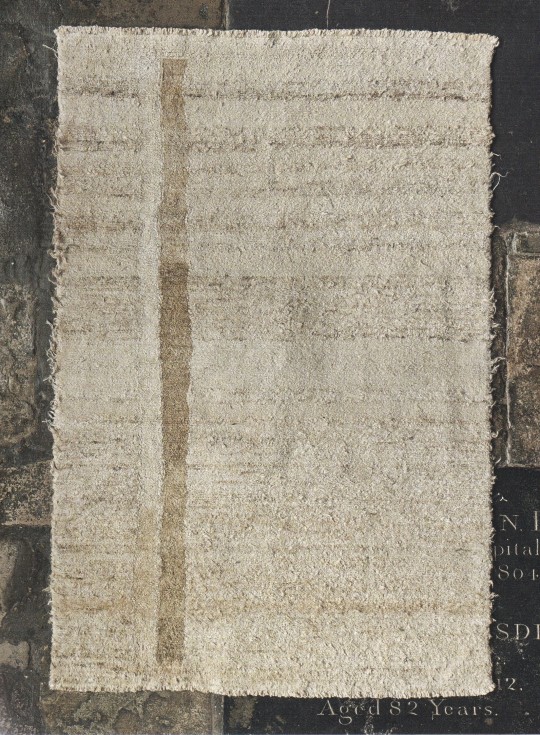 N.
pital
804
SD
12.
Aged 82 Years.